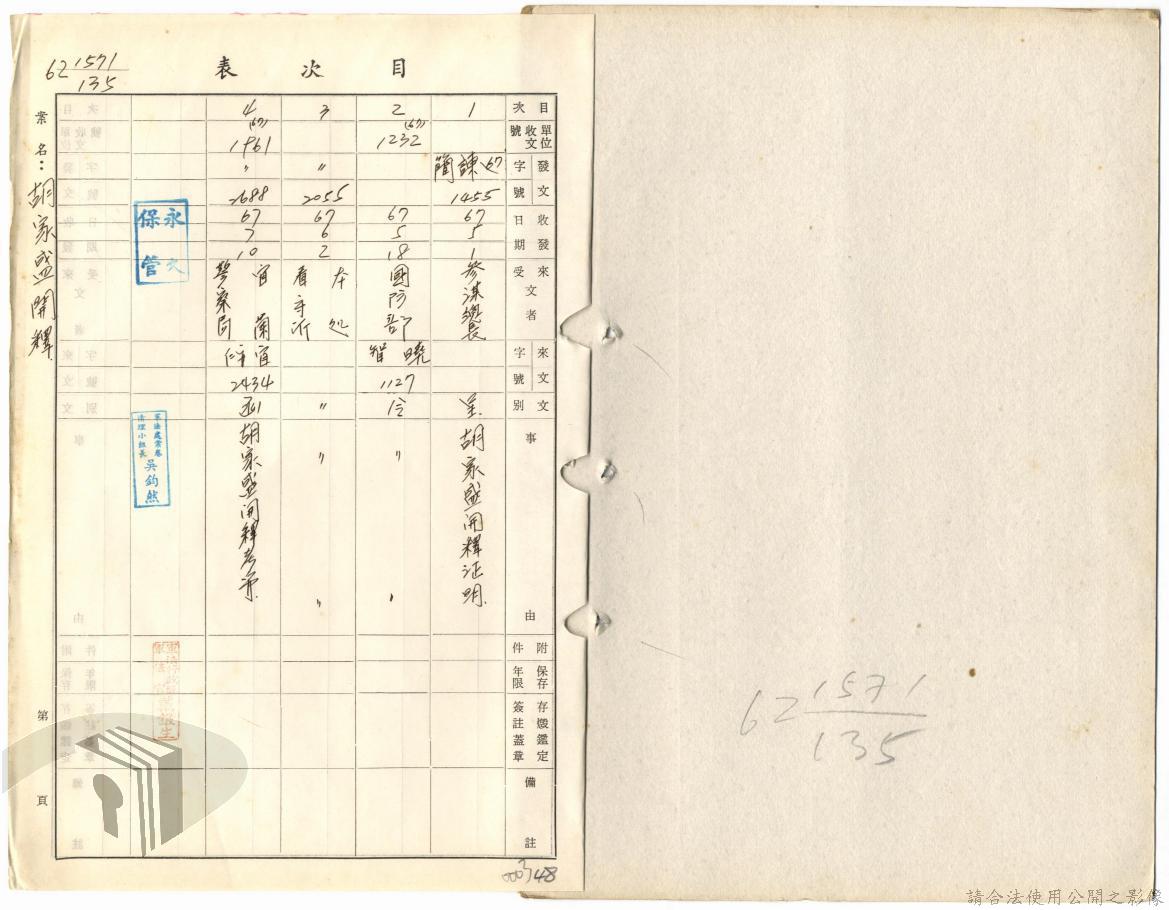 62 1571/135
目次表
案名：胡家盛開釋
第 頁
目次
單位收文號
發文字號
收發日期
來受文者
來文字號
文別
事由
附件
保存年限
存燬鑑定簽註蓋章
備註
1
67
1455
67 5 1
參謀總長
呈
胡家盛開釋证明
2
(67) 1232
67 5 18
國防部
1127
令
〃
〃
3
〃
2055
67 6 2
本處看守所
〃
〃
〃
4
(67) 1961
〃
2688
67 7 10
宜蘭警察局
2434
函
胡家盛開釋
永久保管
軍法處案卷清理小組長
吳鈞然
000348
62 1571/135
請合法使用公開之影像